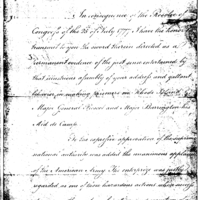 In consequence of the Resolve of
Congress of the 25 of July 1777 I have the honor
transmit to you the sword therein directed as a
permanent evidence of the just sense entertained by
that illustrious assembly of your address and gallant
behavior in making Prisoners on Rhode Island
Major General Prescot and Major Barrington his
Aid de Camp
To this expressive approbation of the supreme
national authority was added the unanimous applause
of the American Army. The enterprize was justly
regarded as one of those hazardous actions which